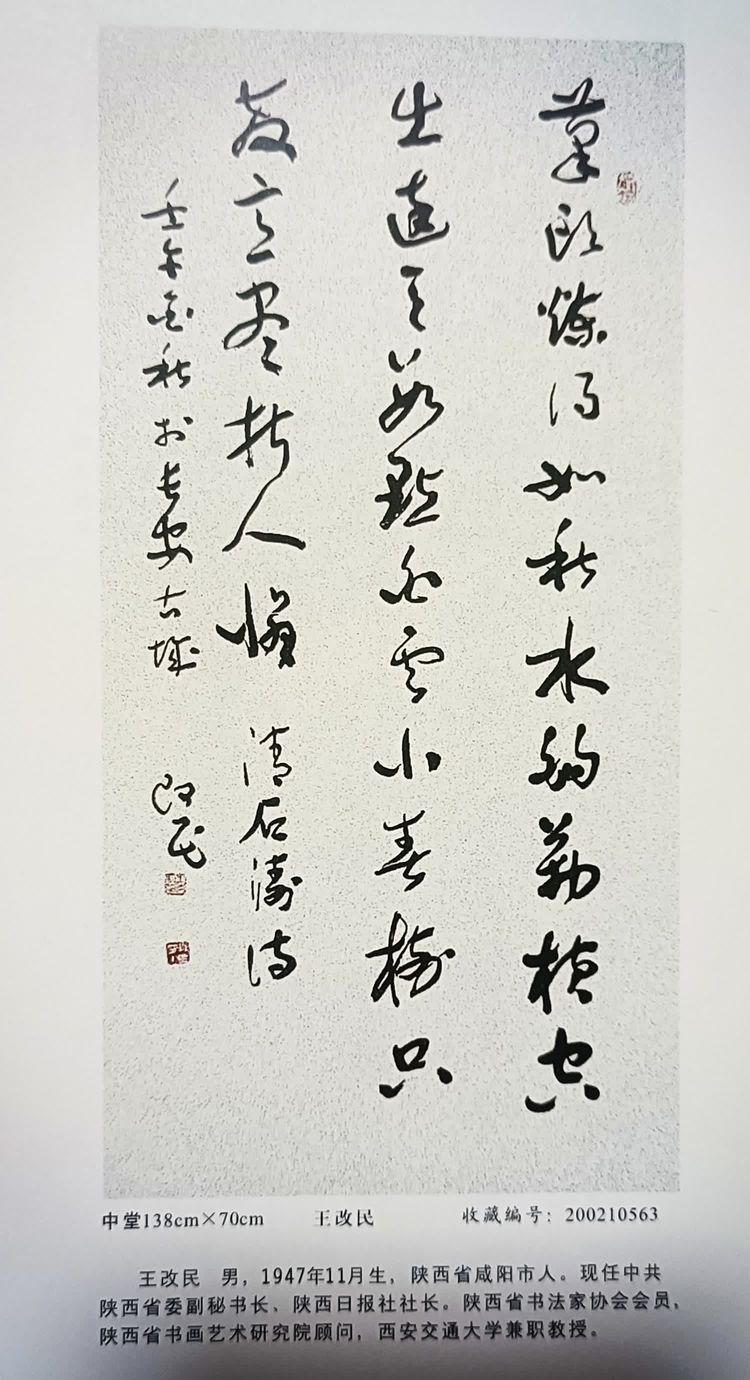 筆頭煉得如秋水勾勒横空
出遠天 點白雲小春樹只
教意尽 人 清石涛诗
壬午金秋於长安古城 改民
中堂138cm×70cm 王改民 收藏编号：200210563
王改民 男，1947年11月生，陕西省咸阳市人。现任中共
陕西省委副秘书长、陕西日报社社长。陕西省书法家协会会员，
陕西省书画艺术研究院顾问，西安交通大学兼职教授。